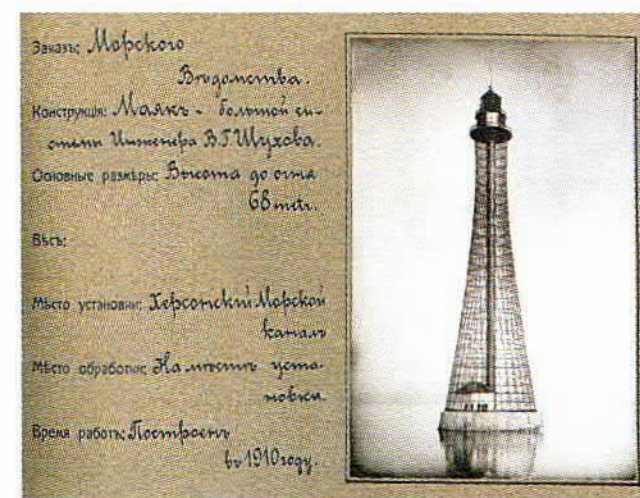 Заказъ: Морского
Вѣдомства.
Конструкція: Маякъ - большой си-
стемы Инженера В.Г. Шухова.
Основные размѣры: Высота до огня
68 mètr.
Вѣсъ:
Мѣсто установки: Херсонскій Морской
каналъ
Мѣсто обработки: На мѣстѣ уста-
новки.
Время работъ: Построенъ
въ 1910 году.